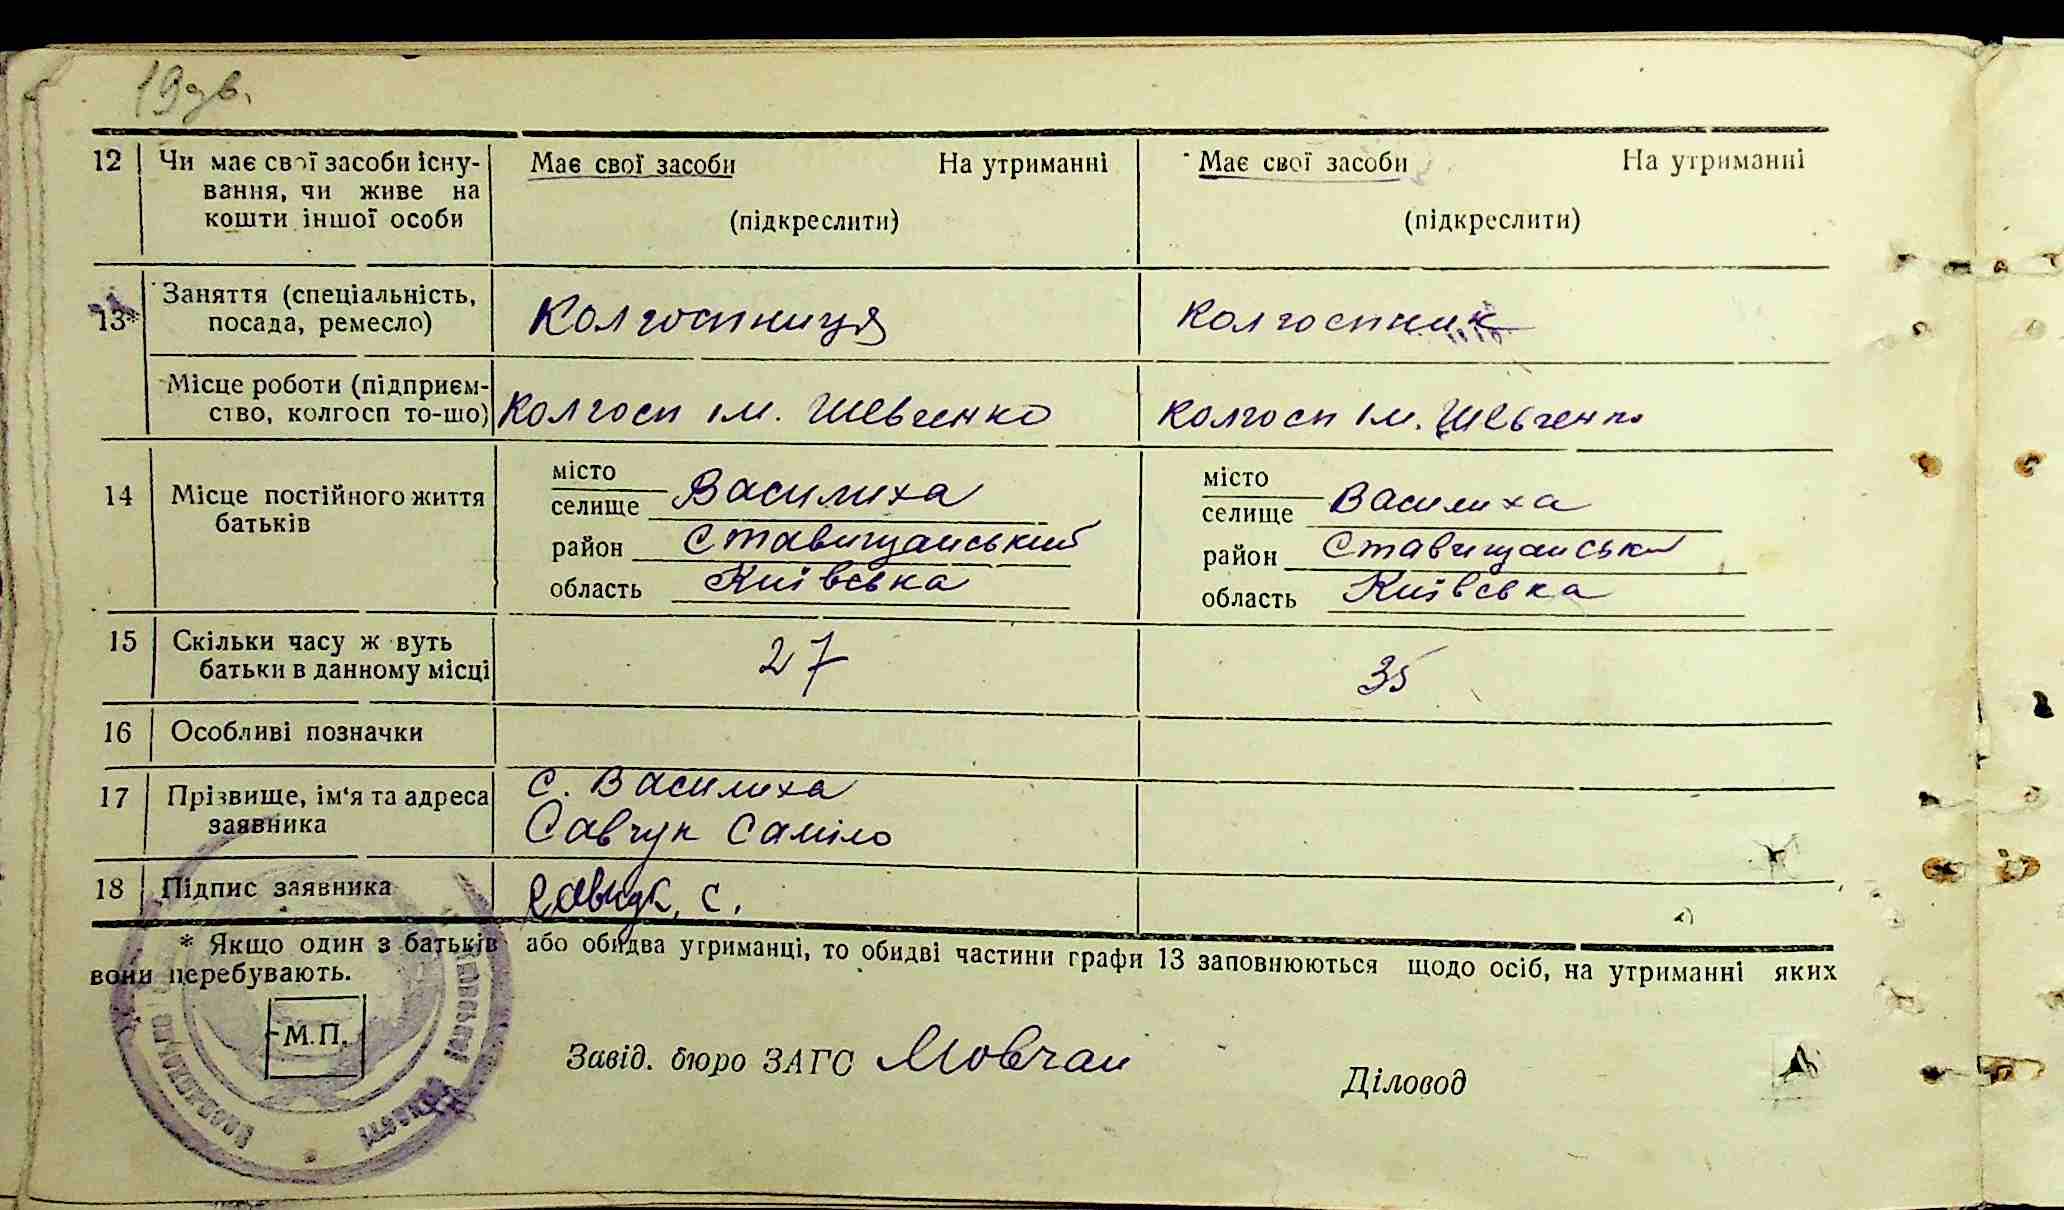 19зв.
12 Чи має свої засоби існу- Має свої засоби На утриманні Має свої засоби На утриманні
вання, чи живе на
кошти іншої особи (підкреслити) (підкреслити)
13* Заняття (спеціальність, Колгоспниця Колгоспник
посада, ремесло)
Місце роботи (підприєм- Колгосп ім. Шевченко Колгосп ім. Шевченко
ство, колгосп то-що)
14 Місце постійного життя місто Василиха місто Василиха
батьків селище селище
район Ставищанський район Ставищанськи
область Київська область Київська
15 Скільки часу ж вуть 27 35
батьки в данному місці
16 Особливі позначки
17 Прізвище, ім'я та адреса с. Василиха
заявника Савчук Саміло
18 Підпис заявника Савчук С.
* Якщо один з батьків або обидва утриманці, то обидві частини графи 13 заповнюються щодо осіб, на утриманні яких
вони перебувають.
М.П.
Завід. бюро ЗАГС Мовчан
Діловод